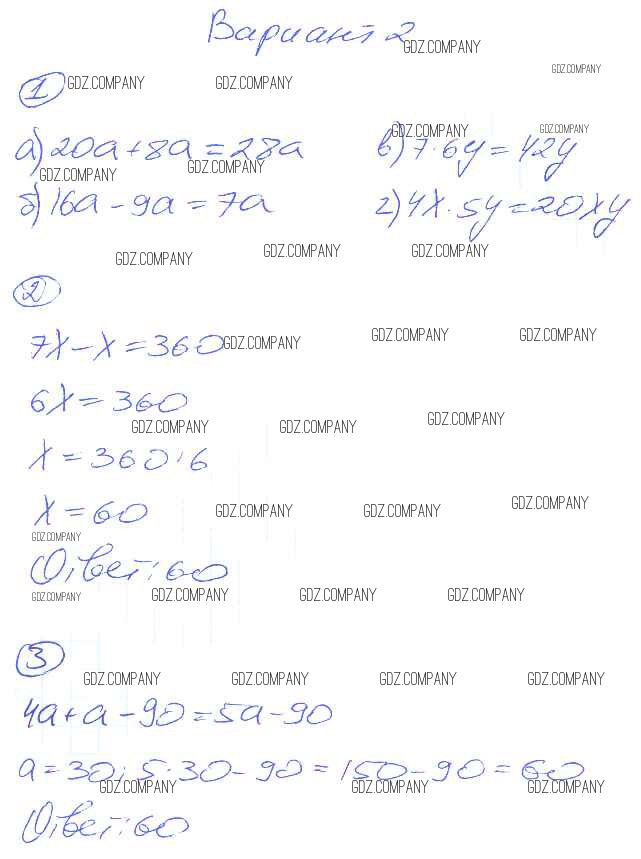 Вариант 2
GDZ.COMPANY
GDZ.COMPANY
1 GDZ.COMPANY GDZ.COMPANY
GDZ.COMPANY GDZ.COMPANY
а) 20a + 8a = 28a в) 7 · 6y = 42y
GDZ.COMPANY GDZ.COMPANY
б) 16a - 9a = 7a г) 4x · 5y = 20xy
GDZ.COMPANY GDZ.COMPANY GDZ.COMPANY
2
7x - x = 360 GDZ.COMPANY GDZ.COMPANY GDZ.COMPANY
6x = 360
GDZ.COMPANY GDZ.COMPANY GDZ.COMPANY
x = 360 : 6
x = 60 GDZ.COMPANY GDZ.COMPANY GDZ.COMPANY
GDZ.COMPANY
Ответ: 60
GDZ.COMPANY GDZ.COMPANY GDZ.COMPANY GDZ.COMPANY
3
GDZ.COMPANY GDZ.COMPANY GDZ.COMPANY GDZ.COMPANY
4a + a - 90 = 5a - 90
a = 30; 5 · 30 - 90 = 150 - 90 = 60
GDZ.COMPANY GDZ.COMPANY GDZ.COMPANY
Ответ: 60